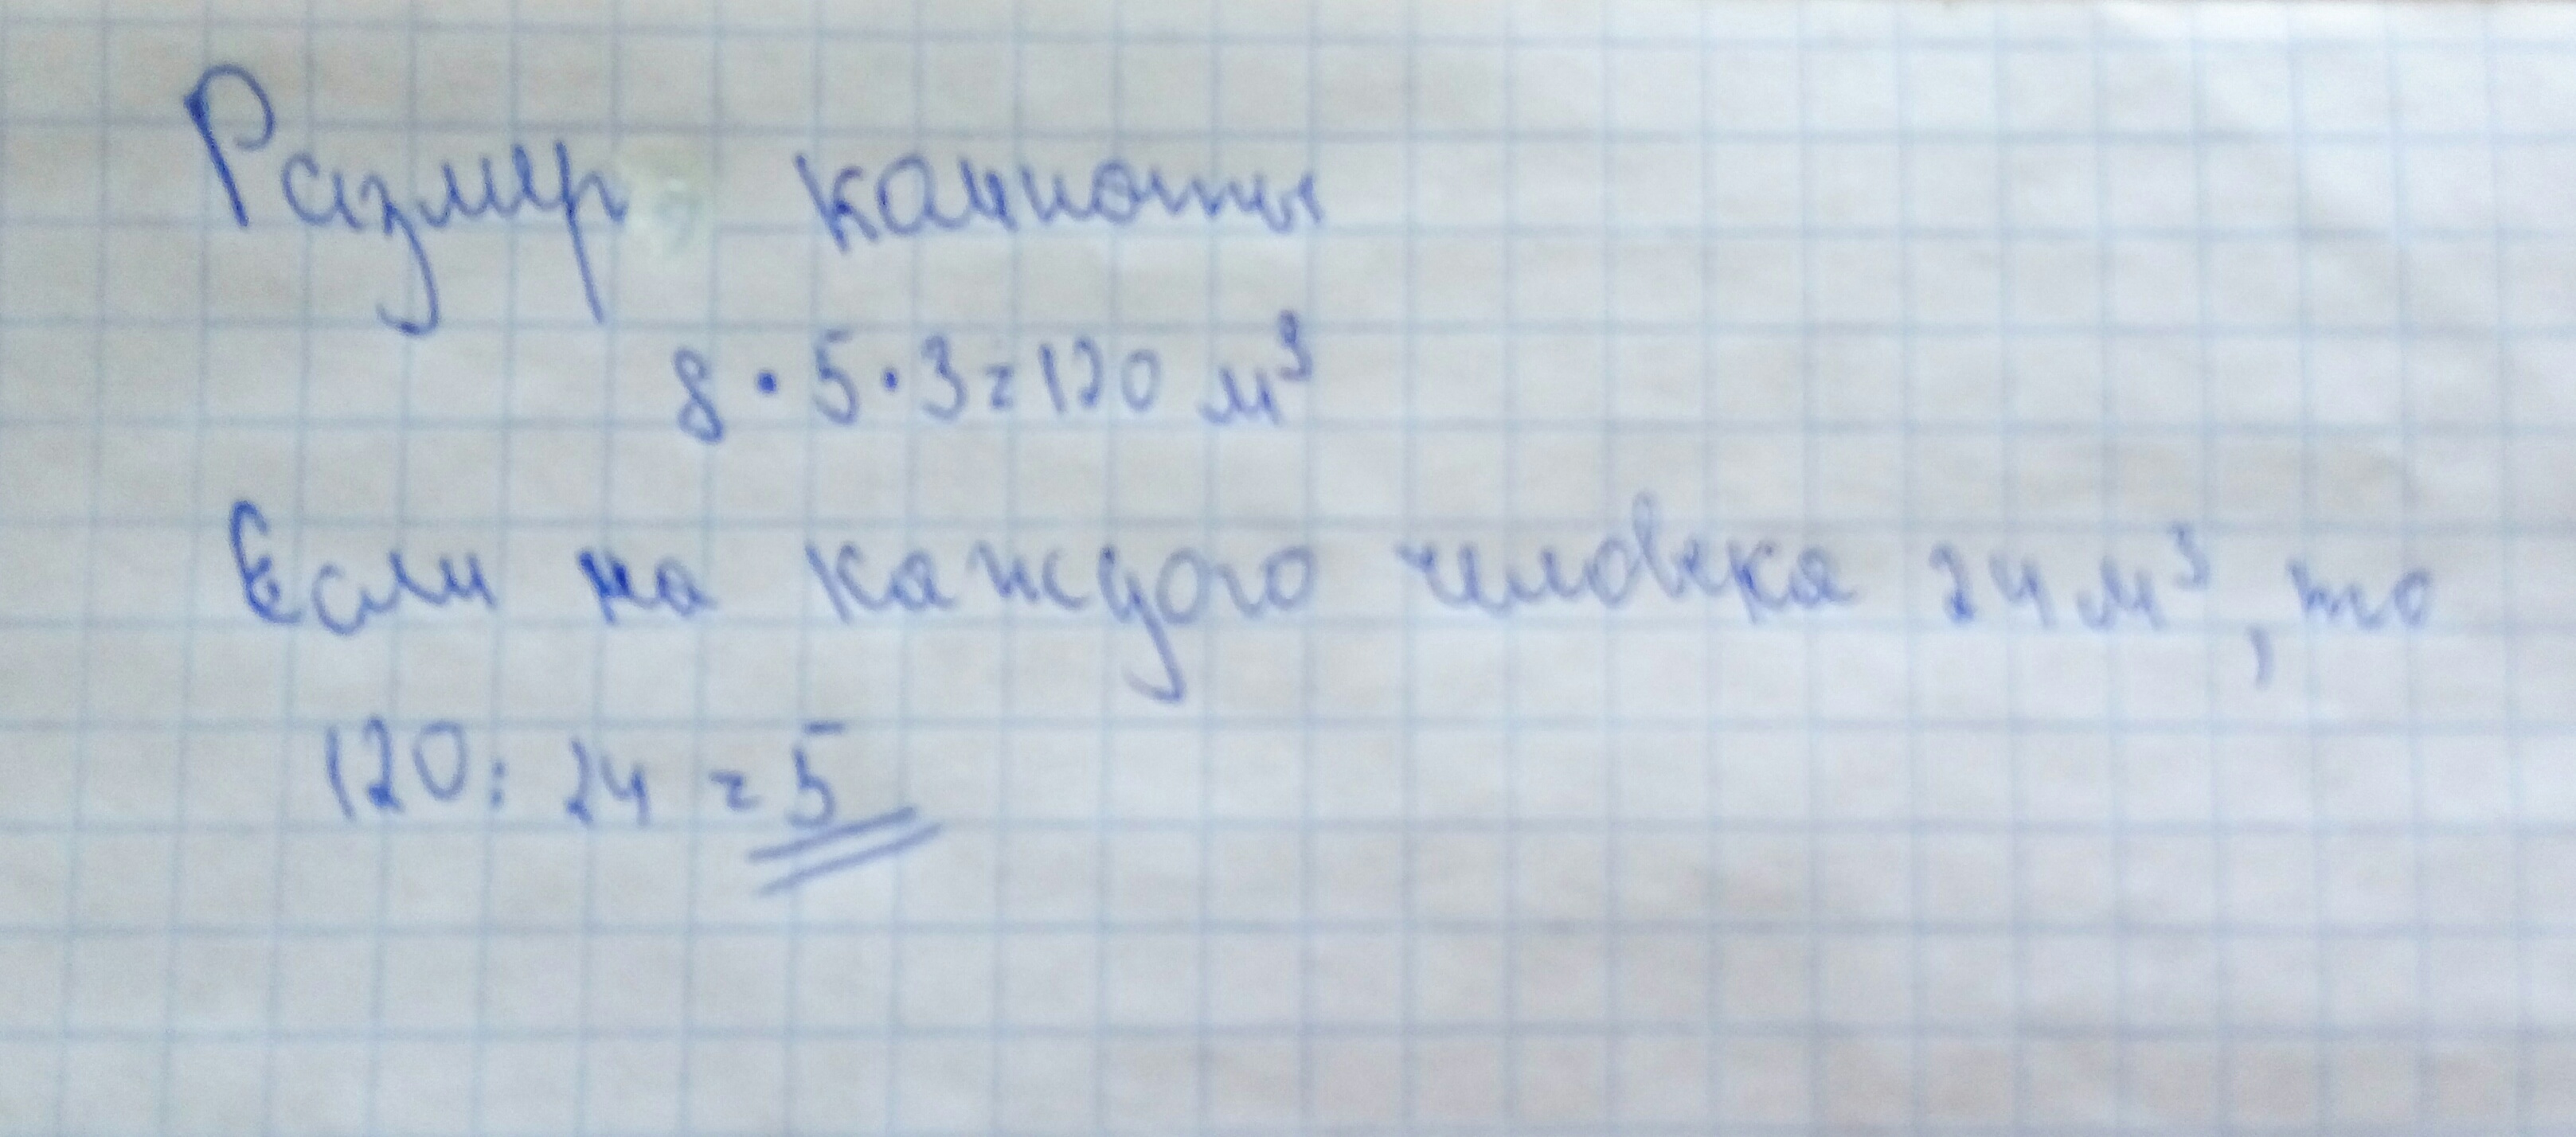 Размер комноты
8 · 5 · 3 = 120 м³
Если на каждого человека 24 м³, то
120 : 24 = 5